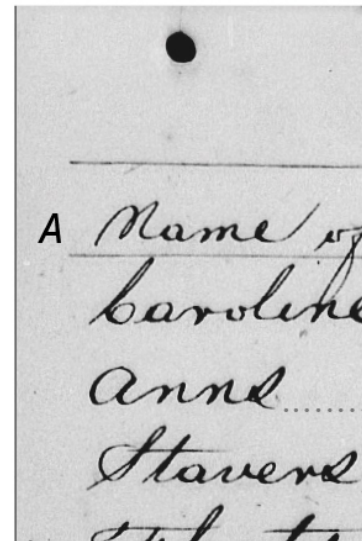 A Name of
Caroline
Anne
Stavers